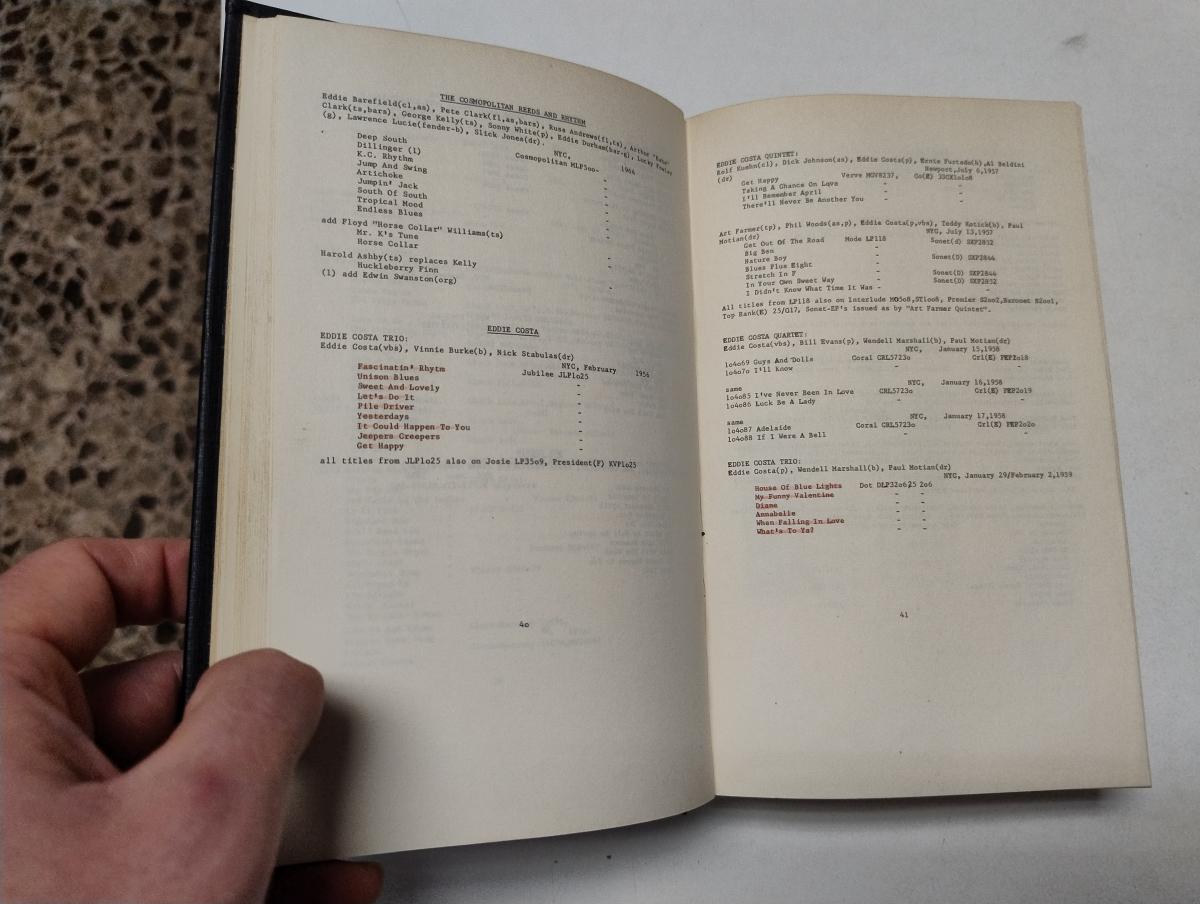 THE COSMOPOLITAN REEDS AND RHYTHM
Eddie Barefield(cl,as), Pete Clark(fl,as,bars), Russ Andrews(fl,ts), Arthur "Babe"
Clark(ts,bars), George Kelly(ts), Sonny White(p), Eddie Durham(bar-g), Lucky
(g), Lawrence Lucie(fender-b), Slick Jones(dr).
NYC, 1964
Deep South Cosmopolitan MLP5oo-
Dillinger (1) -
K.C. Rhythm -
Jump And Swing -
Artichoke -
Jumpin' Jack -
South Of South -
Tropical Mood -
Endless Blues -
add Floyd "Horse Collar" Williams(ts)
Mr. K's Tune -
Horse Collar -
Harold Ashby(ts) replaces Kelly
Huckleberry Finn -
(1) add Edwin Swanston(org)
EDDIE COSTA
EDDIE COSTA TRIO:
Eddie Costa(vbs), Vinnie Burke(b), Nick Stabulas(dr)
NYC, February 1956
Fascinatin' Rhytm Jubilee JLP1o25
Unison Blues -
Sweet And Lovely -
Let's Do It -
Pile Driver -
Yesterdays -
It Could Happen To You -
Jeepers Creepers -
Get Happy -
all titles from JLP1o25 also on Josie LP35o9, President(F) KVP1o25
4o
EDDIE COSTA QUINTET:
Rolf Kuehn(cl), Dick Johnson(as), Eddie Costa(p), Ernie Furtado(b),Al Beldini
(dr) Newport,July 6,1957
Get Happy Verve MGV8237, Co(E) 33CX1o1o8
Taking A Chance On Love - -
I'll Remember April - -
There'll Never Be Another You - -
Art Farmer(tp), Phil Woods(as,p), Eddie Costa(p,vbs), Teddy Kotick(b), Paul
Motian(dr) NYC, July 13,1957
Get Out Of The Road Mode LP118 Sonet(d) SXP2852
Big Ben -
Nature Boy - Sonet(D) SXP2844
Blues Plus Eight -
Stretch In F - Sonet(D) SXP2844
In Your Own Sweet Way - Sonet(D) SXP2852
I Didn't Know What Time It Was - -
All titles from LP118 also on Interlude MO5o8,ST1oo8, Premier S2oo2,Baronet B2oo1,
Top Rank(E) 25/O17, Sonet-EP's issued as by "Art Farmer Quintet".
EDDIE COSTA QUARTET:
Eddie Costa(vbs), Bill Evans(p), Wendell Marshall(b), Paul Motian(dr)
NYC, January 15,1958
1o4o69 Guys And Dolls Coral CRL5723o Crl(E) FEP2o18
1o4o7o I'll Know - -
same NYC, January 16,1958
1o4o85 I've Never Been In Love CRL5723o Crl(E) FEP2o19
1o4o86 Luck Be A Lady - -
same NYC, January 17,1958
1o4o87 Adelaide Coral CRL5723o Crl(E) FEP2o2o
1o4o88 If I Were A Bell - -
EDDIE COSTA TRIO:
Eddie Costa(p), Wendell Marshall(b), Paul Motian(dr)
NYC, January 29/February 2,1959
House Of Blue Lights Dot DLP32o625 2o6
My Funny Valentine - -
Diane - -
Annabelle - -
When Falling In Love - -
What's To Ya? - -
41